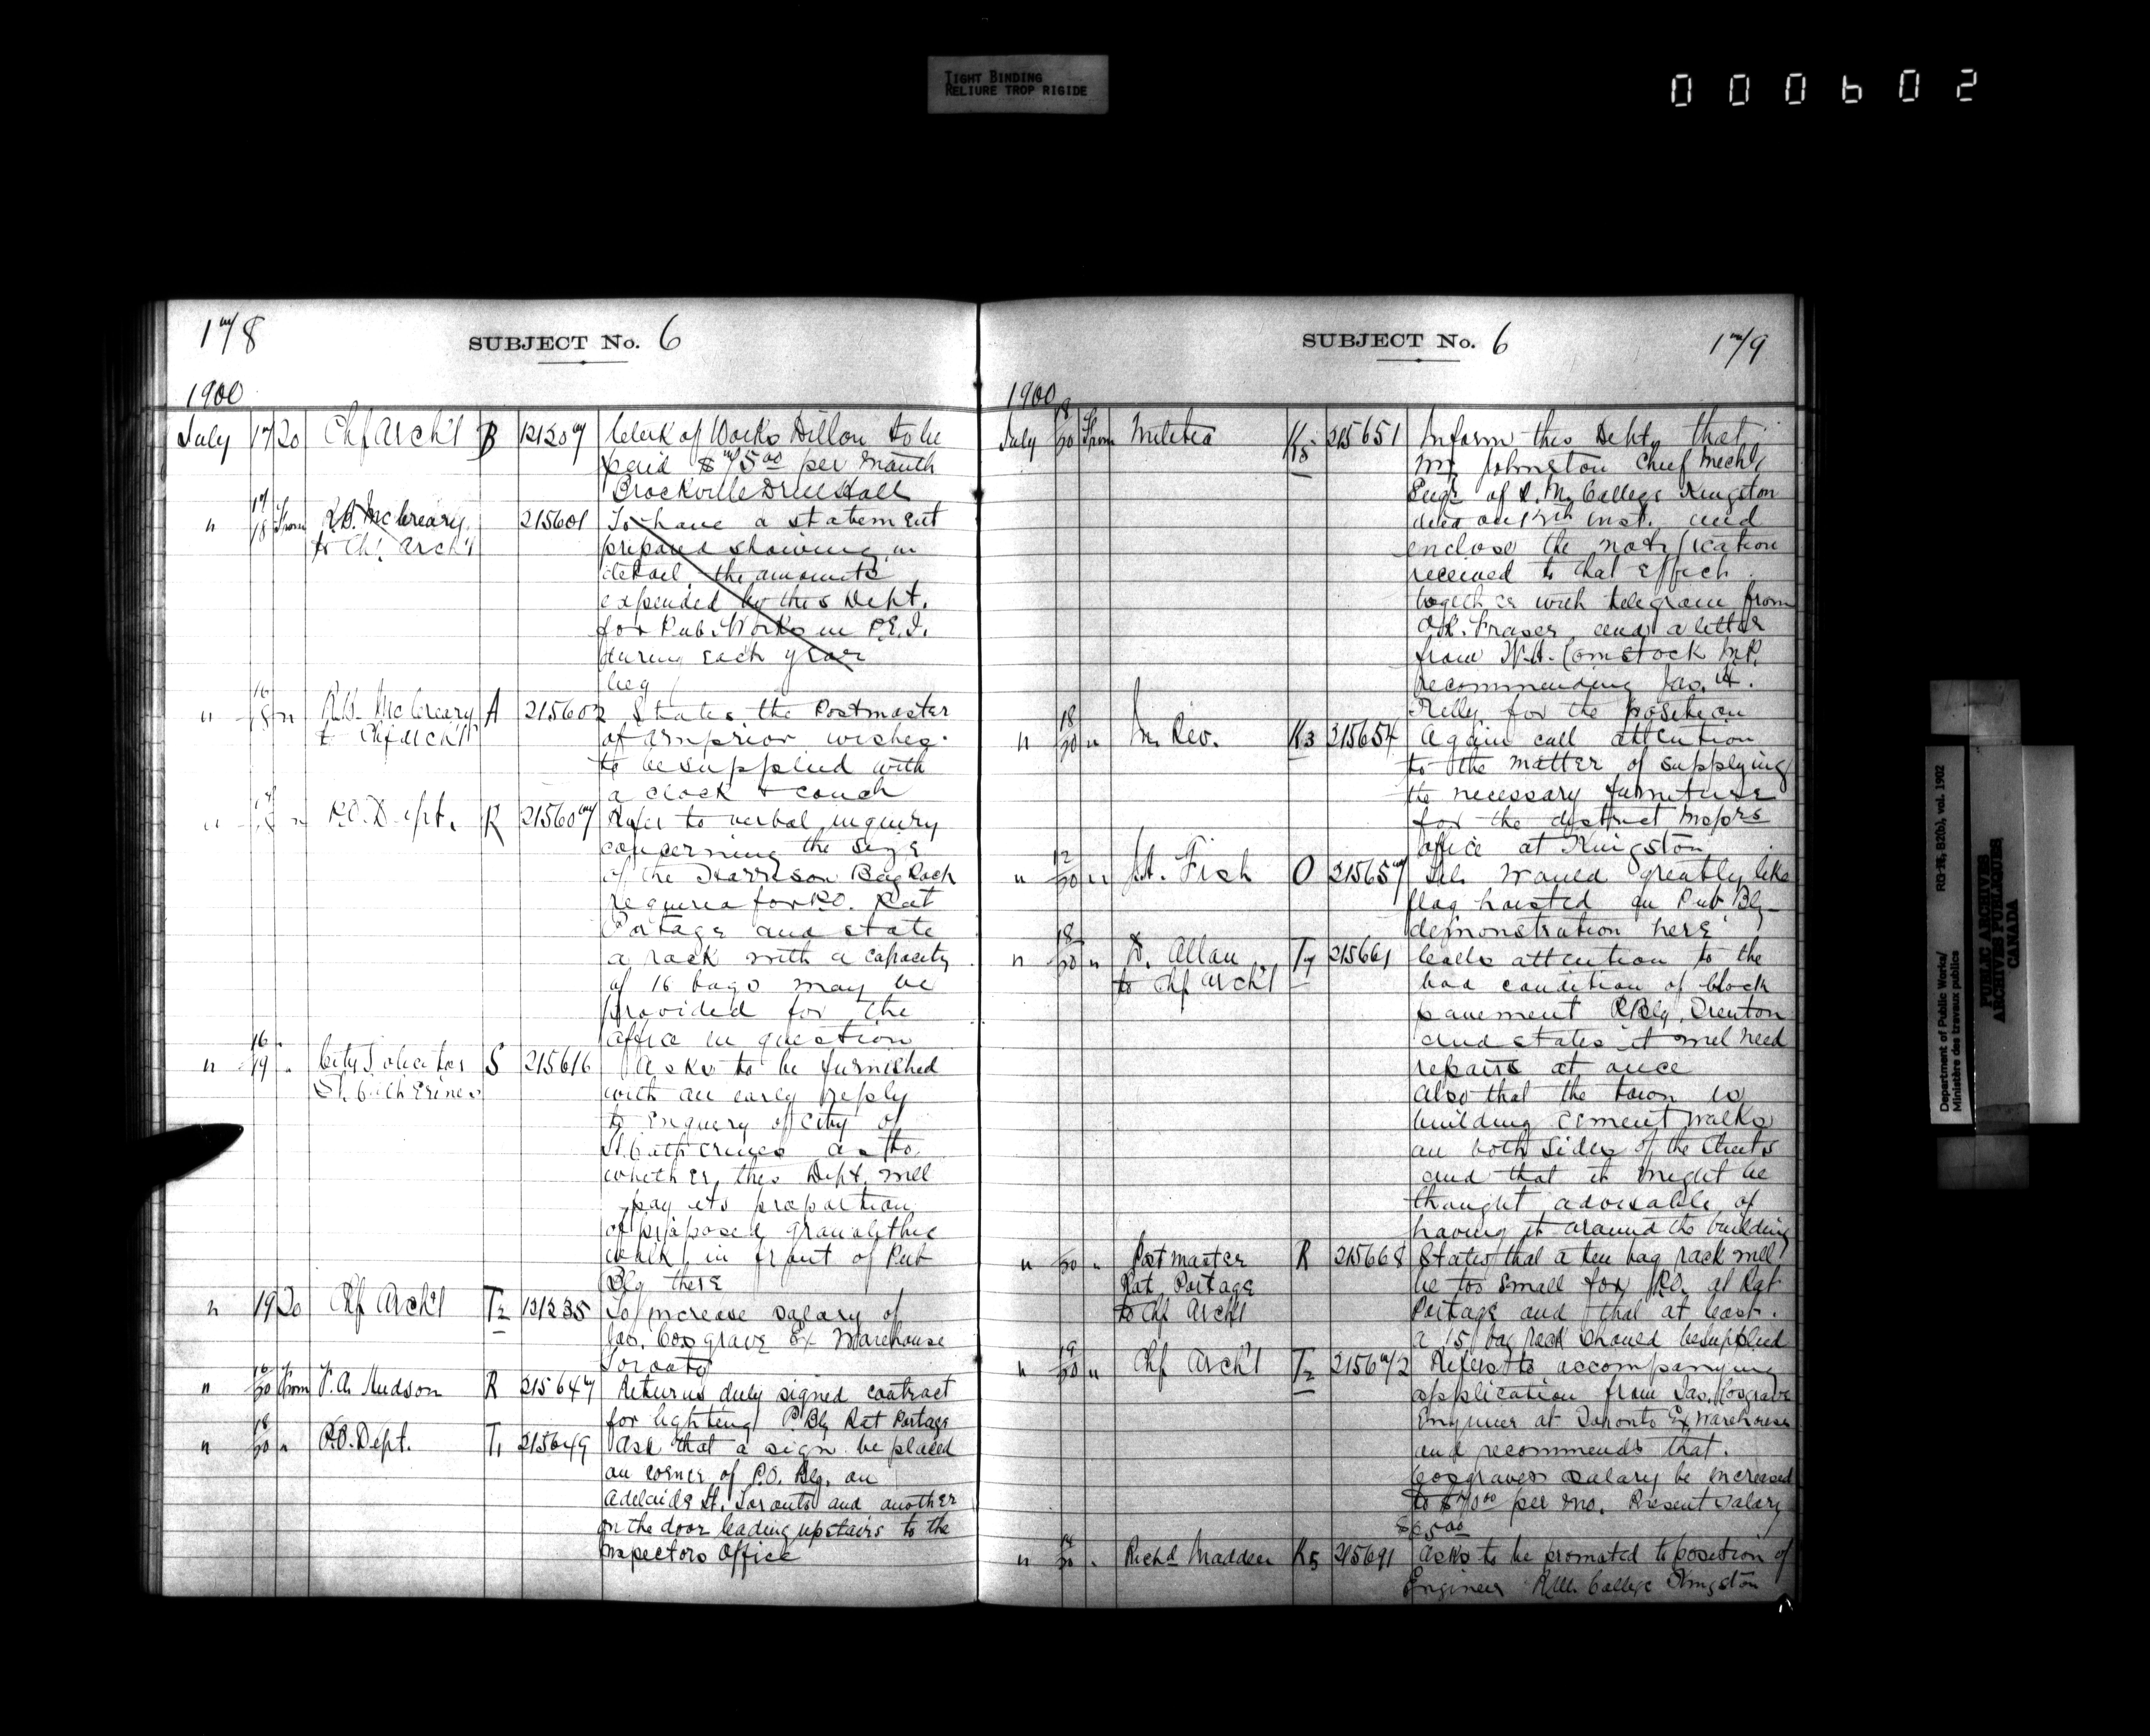 TIGHT BINDING
RELIURE TROP RIGIDE
000602
178
SUBJECT No. 6
1900
July 17 20 Chf Arch't B 121207 Clerk of Works Dillon to be
paid $75.00 per month
Brockville Drill Hall
" 17/18 From R.B. McCreary 215601 To have a statement
to Chf Arch't prepared showing in
detail the amounts
expended by this Dept.
for Pub. Works in P.E.I.
during each year
beg
" 16/18 " R.B. McCreary A 215602 States the Postmaster
to Chf Arch't of Arnprior wishes
to be supplied with
a clock & couch
" " P.O. Dept. R 215607 Refer to verbal inquiry
concerning the size
of the Harrison Bag Rack
required for P.O. Rat
Portage and state
a rack with a capacity
of 16 bags may be
provided for the
office in question
" 16/19 " City Solicitor S 215616 Asks to be furnished
St. Catherines with an early reply
to Enquiry of City of
St. Catherines as to
whether this Dept. will
pay its proportion
of proposed granolithic
walk in front of Pub
Blg there
" 19 20 Chf Arch't T2 121235 To increase salary of
Jas. Cosgrave Ex Warehouse
Toronto
" 16/20 From P.A. Hudson R 215647 Returns duly signed contract
for lighting P. Blg Rat Portage
" 18/20 " P.O. Dept. T1 215649 Ask that a sign be placed
on corner of P.O. Blg. on
Adelaide St. Toronto and another
on the door leading upstairs to the
Inspectors Office
SUBJECT No. 6
179
1900
July 18/20 From Militia K5 215651 Inform this Dept. that
Mr Johnston Chief Mech'l
Engr of R.M. College Kingston
died on inst. and
enclose the notification
received to that effect
together with telegram from
Fraser and a letter
from Comstock M.P.
recommending Jas. H.
for the position
" 18/20 " In. Rev. K3 215654 Again call attention
to the matter of supplying
the necessary furniture
for the district
office at Kingston
" 12/20 " Fish O 215657 would greatly like
flag hoisted on Pub Blg
demonstration here
" 18/20 " D. Allan T7 215661 Calls attention to the
to Chf Arch't bad condition of block
pavement P Blg Trenton
and states it will need
repairs at once
Also that the town is
building cement walks
on both sides of the Streets
and that it might be
thought advisable of
having it around the building
" /20 " Postmaster R 215668 States that a ten bag rack will
Rat Portage be too small for P.O. at Rat
to Chf Arch't Portage and that at least
a 15 bag rack should be supplied
" 19/20 " Chf Arch't T2 215672 Refers to accompanying
application from Jas. Cosgrave
Engineer at Toronto Ex Warehouse
and recommends that
Cosgraves salary be increased
to $70.00 per mo. Present salary
$65.00
" /20 " Richd Madden K5 215691 Asks to be promoted to position of
Engineer R.M. College Kingston
Department of Public Works/
Ministère des travaux publics
RG 11, B2(b), vol. 1902
PUBLIC ARCHIVES
ARCHIVES PUBLIQUES
CANADA